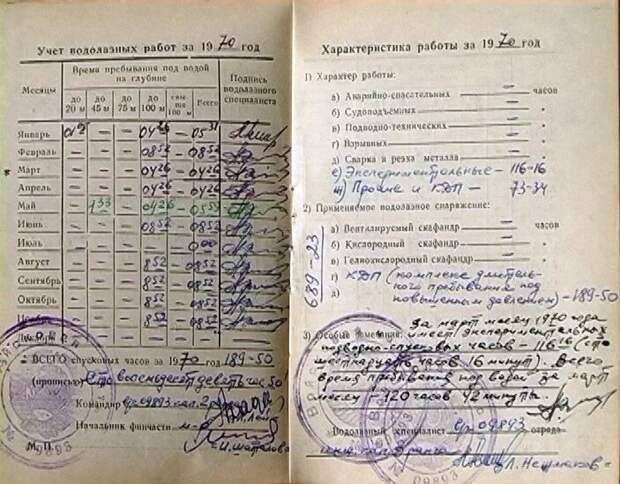 Учет водолазных работ за 1970 год
Месяцы
Время пребывания под водой на глубине
Подпись водолазного специалиста
до 20 м
до 45 м
до 75 м
до 100 м
свыше 100 м
Всего
Январь 04 26 — 05 31
Февраль 08 52 — 08 52
Март 04 26 — 04 26
Апрель 04 26 — 04 26
Май 1 33 04 26 — 05 59
Июнь 08 52 — 08 52
Июль — 0 00
Август 8 52 — 8 52
Сентябрь 8 52 — 8 52
Октябрь 8 52 — 8 52
Ноябрь 8 52 — 8 52
Декабрь
ВСЕГО спусковых часов за 1970 год 189-50
(прописью) Сто восемьдесят девять час 50
Командир
Начальник финчасти
М. П.
Характеристика работы за 1970 год
1) Характер работы:
а) Аварийно-спасательных — часов
б) Судоподъемных —
в) Подводно-технических —
г) Взрывных —
д) Сварка и резка металла —
е) Экспериментальные — 116-16
ж) Прочие и КДП — 73-34
2) Применяемое водолазное снаряжение:
а) Вентилируемый скафандр — часов
б) Кислородный скафандр —
в) Гелиокислородный скафандр —
г) КДП (комплекс длитель-
д) ного пребывания под
повышенным давлением) — 189-50
689-23
3) Особые замечания: За март месяц 1970 года
имеет экспериментальных
часов — 116 16 (сто
шестнадцать часов 16 минут). Всего
время пребывания под водой за март
месяц — 120 часов 42 минуты.
Водолазный специалист 09893 отряда